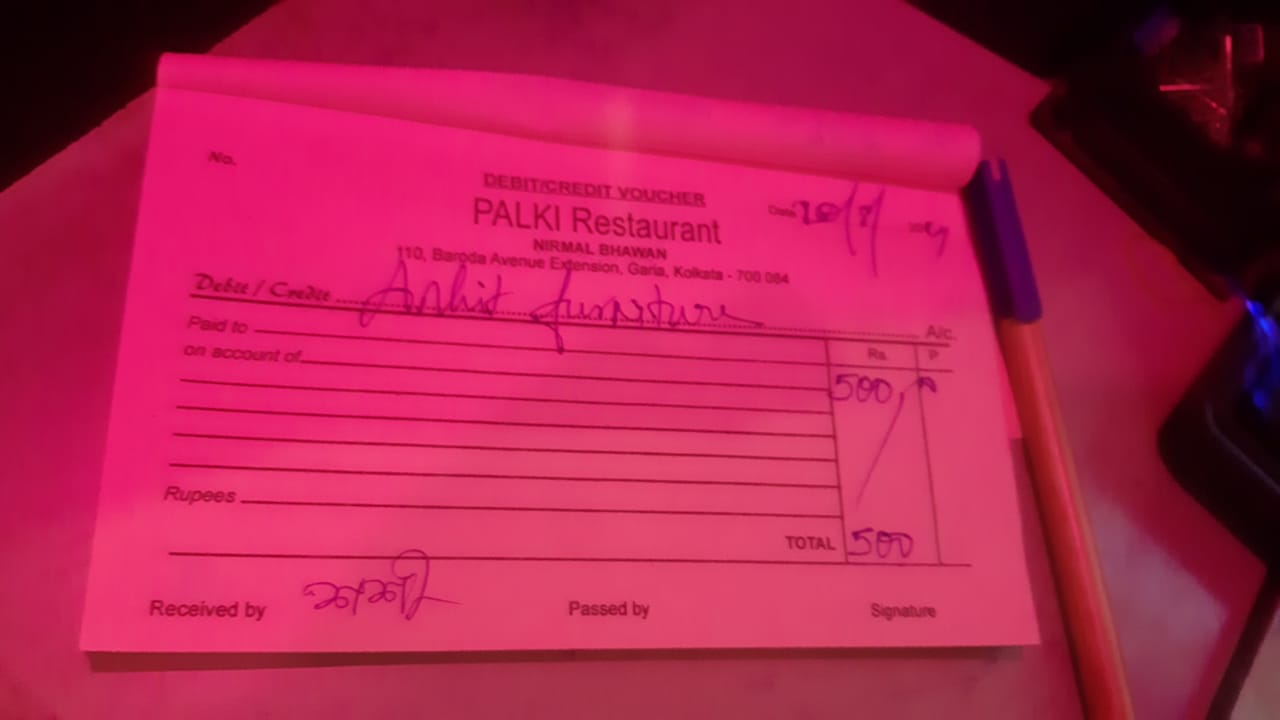 No.
DEBIT/CREDIT VOUCHER
PALKI Restaurant
NIRMAL BHAWAN
110, Baroda Avenue Extension, Garia, Kolkata - 700 084
Date
Debit / Credit Ankit furniture A/c.
Paid to
on account of
Rs. P
500,
Rupees
TOTAL 500
Received by
Passed by
Signature